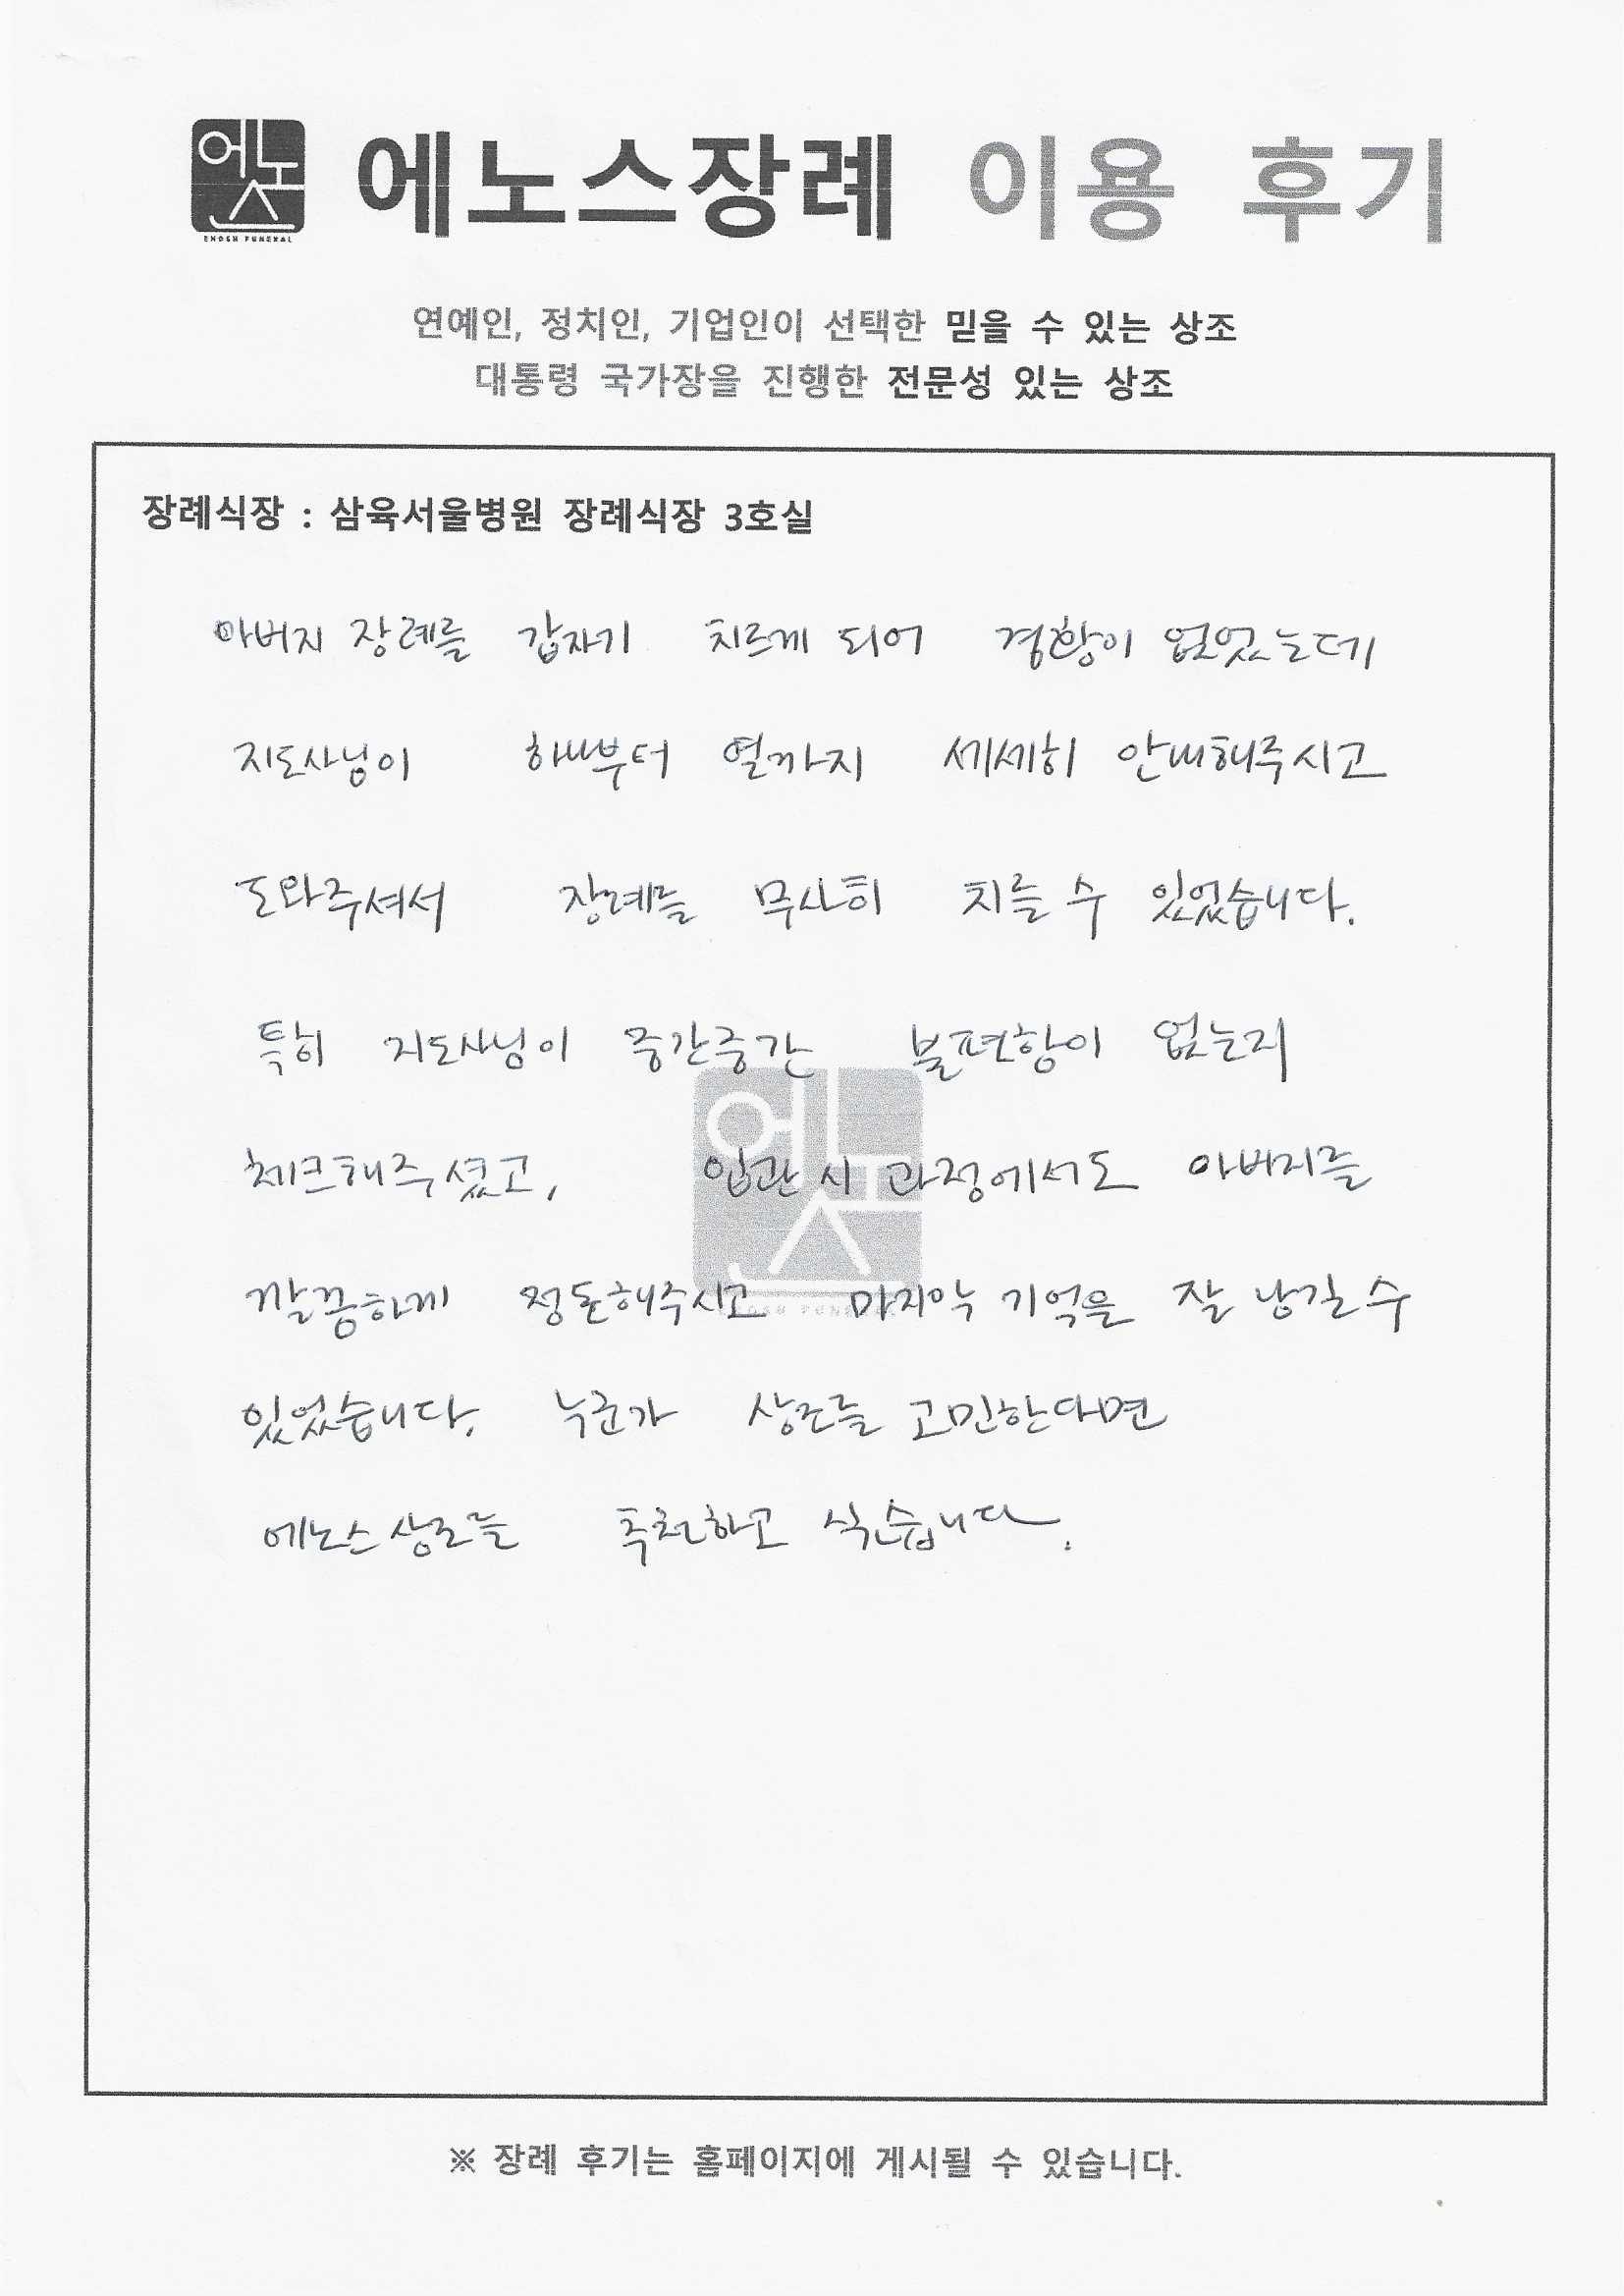 에노스
ENOSH FUNERAL
에노스장례 이용 후기
연예인, 정치인, 기업인이 선택한 믿을 수 있는 상조
대통령 국가장을 진행한 전문성 있는 상조
장례식장 : 삼육서울병원 장례식장 3호실
아버지 장례를 갑자기 치르게 되어 경황이 없었는데
지도사님이 하나부터 열까지 세세히 안내해주시고
도와주셔서 장례를 무사히 치를 수 있었습니다.
특히 지도사님이 중간중간 불편함이 없는지
체크해주셨고, 입관 시 과정에서도 아버지를
깔끔하게 정돈해주시고 마지막 기억을 잘 남길 수
있었습니다. 누군가 상조를 고민한다면
에노스 상조를 추천하고 싶습니다.
에노스
ENOSH FUNERAL
※ 장례 후기는 홈페이지에 게시될 수 있습니다.